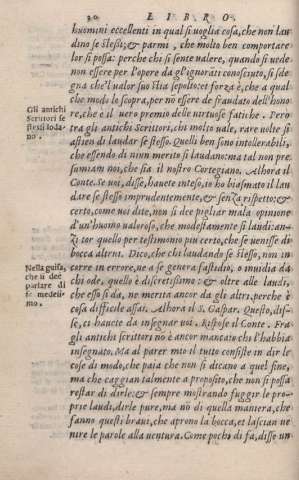 30 LIBRO
huomini eccellenti in qual si uoglia cosa, che non lau
dino se stessi; & parmi, che molto ben comportare
lor si possa: perche chi si sente ualere, quando si uede
non essere per l'opere da gl'ignorati conosciuto, si sde
gna che'l ualor suo stia sepolto: et forza è, che a qual
che modo lo scopra, per nō essere de fraudato dell'hono
re, che è il uero premio delle uirtuose fatiche. Però
tra gli antichi Scrittori, chi molto uale, rare uolte si
astien di laudar se stesso. Quelli ben sono intollerabili,
che essendo di niun merito si laudano: ma tal non pre
sumiam noi, che sia il nostro Cortegiano. Alhora il
Conte. Se uoi, disse, hauete inteso, io ho biasimato il lau
dare se stesso imprudentemente, & senza rispetto: &
certo, come uoi dite, non si dee pigliar mala opinione
d'un'huomo ualoroso, che modestamente si laudi: an
zi tor quello per testimonio piu certo, che se uenisse di
bocca altrui. Dico, che chi laudando se stesso, non in-
corre in errore, ne a se genera fastidio, o inuidia da
chi ode, quello è discretissimo: & oltre alle laudi,
che esso si dà, ne merita ancor da gli altri, perche è
cosa difficile assai. Alhora il S. Gaspar. Questo, dis-
se, ci hauete da insegnar uoi. Rispose il Conte. Fra
gli antichi scrittori nō è ancor mancato chi l'habbia
insegnato. Ma al parer mio il tutto consiste in dir le
cose di modo, che paia che non si dicano a quel fine,
ma che caggian talmente a proposito, che non si possa
restar di dirle: & sempre mostrando fuggir le pro-
prie laudi, dirle pure, ma nō di quella maniera, che
fanno questi braui, che aprono la bocca, et lascian ue
nire le parole alla uentura. Come pochi dì fa, disse un
Gli antichi
Scrittori se
stessi loda-
no.
Nella guisa,
che si dee
parlare di
se medesi-
mo.